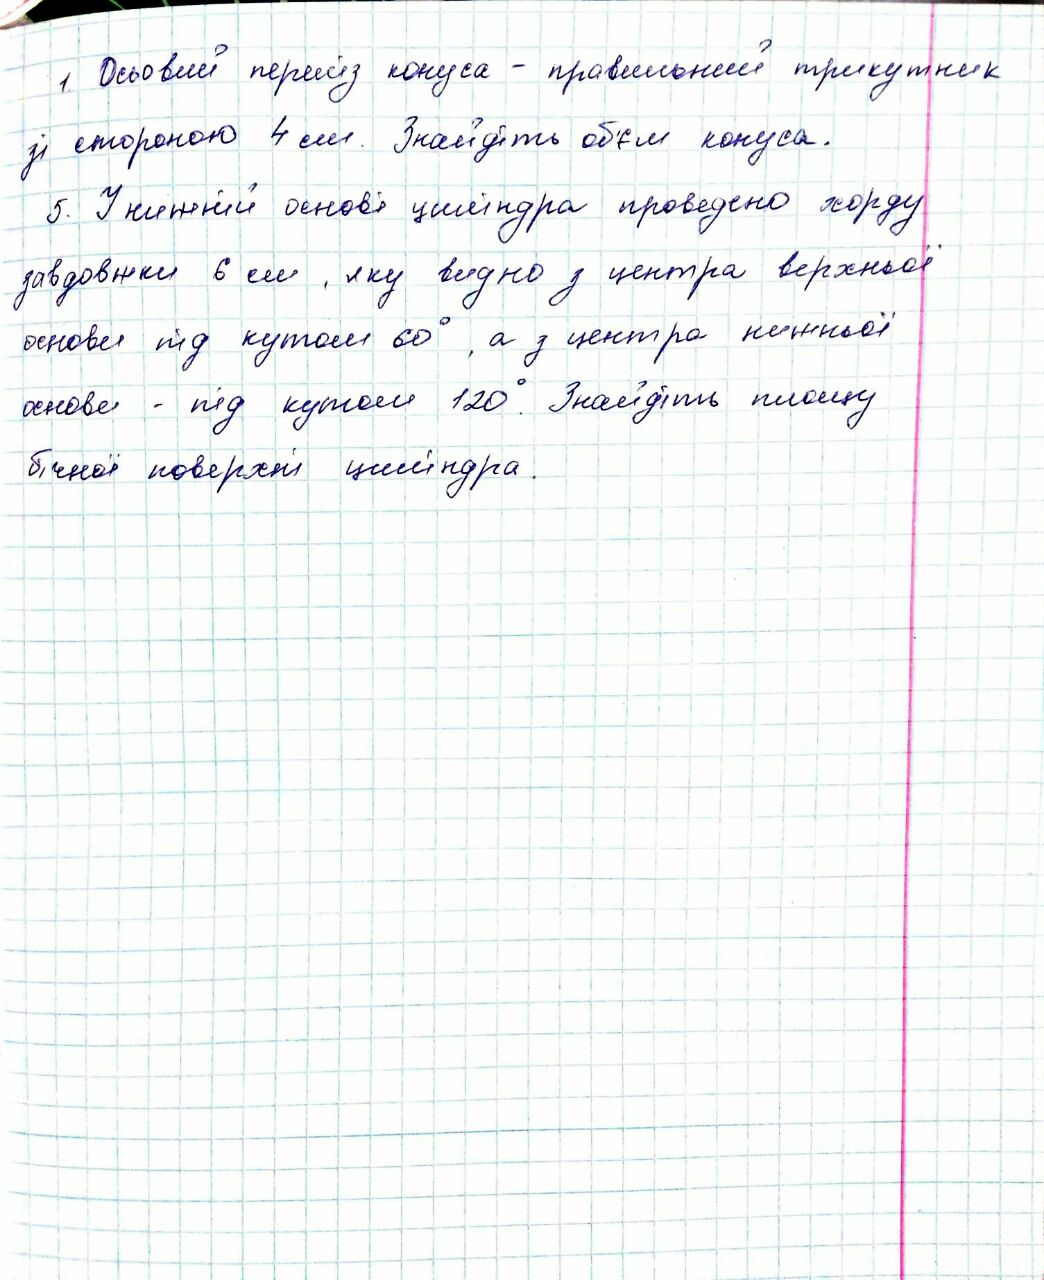 1. Осьовий переріз конуса - правильний трикутник
зі стороною 4 см. Знайдіть об'єм конуса.
5. У нижній основі циліндра проведено хорду
завдовжки 6 см, яку видно з центра верхньої
основи під кутом 60°, а з центра нижньої
основи - під кутом 120°. Знайдіть площу
бічної поверхні циліндра.